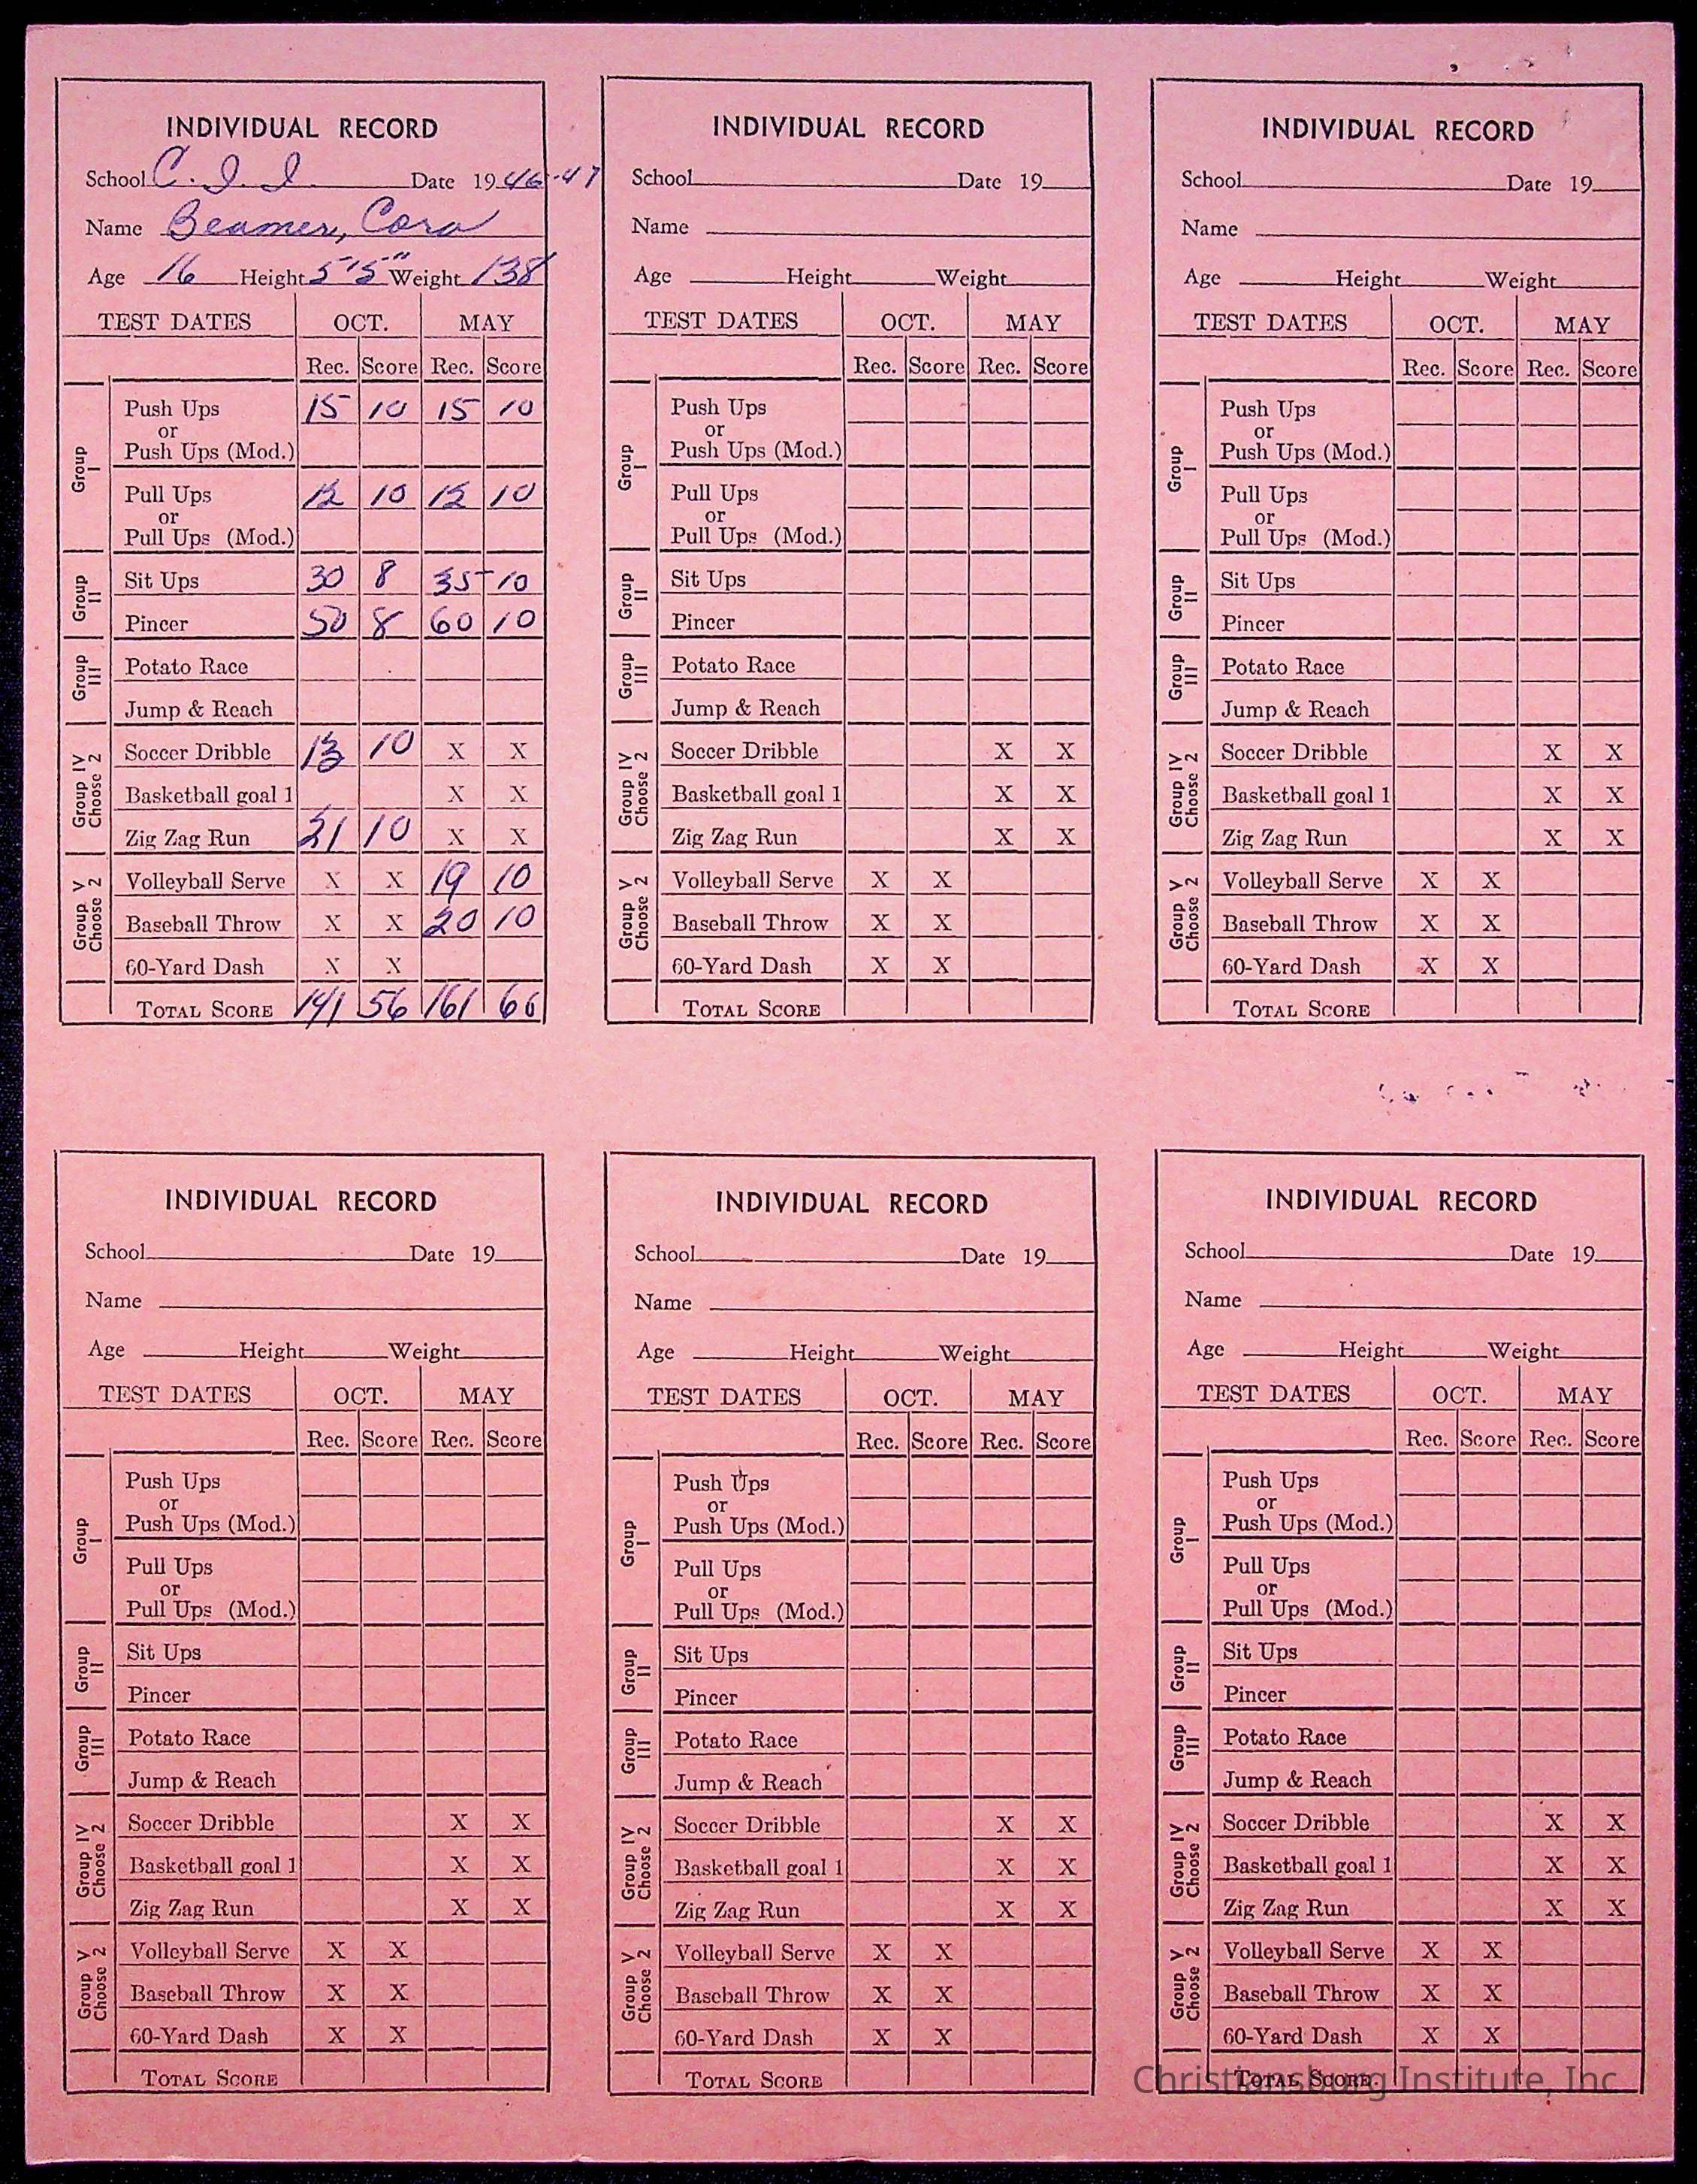 INDIVIDUAL RECORD
School C. I. I. Date 1946-47
Name Beamer, Cora
Age 16 Height 5'5" Weight 138
TEST DATES OCT. MAY
Rec. Score Rec. Score
Group I
Push Ups 15 10 15 10
or
Push Ups (Mod.)
Pull Ups 10 10
or
Pull Ups (Mod.)
Group II
Sit Ups 30 8 35 10
Pincer 50 8 60 10
Group III
Potato Race
Jump & Reach
Group IV Choose 2
Soccer Dribble 13 10 X X
Basketball goal 1 X X
Zig Zag Run 21 10 X X
Group V Choose 2
Volleyball Serve X X 19 10
Baseball Throw X X 20 10
60-Yard Dash X X
TOTAL SCORE 141 56 161 60
INDIVIDUAL RECORD
School Date 19
Name
Age Height Weight
TEST DATES OCT. MAY
Rec. Score Rec. Score
Group I
Push Ups
or
Push Ups (Mod.)
Pull Ups
or
Pull Ups (Mod.)
Group II
Sit Ups
Pincer
Group III
Potato Race
Jump & Reach
Group IV Choose 2
Soccer Dribble X X
Basketball goal 1 X X
Zig Zag Run X X
Group V Choose 2
Volleyball Serve X X
Baseball Throw X X
60-Yard Dash X X
TOTAL SCORE
INDIVIDUAL RECORD
School Date 19
Name
Age Height Weight
TEST DATES OCT. MAY
Rec. Score Rec. Score
Group I
Push Ups
or
Push Ups (Mod.)
Pull Ups
or
Pull Ups (Mod.)
Group II
Sit Ups
Pincer
Group III
Potato Race
Jump & Reach
Group IV Choose 2
Soccer Dribble X X
Basketball goal 1 X X
Zig Zag Run X X
Group V Choose 2
Volleyball Serve X X
Baseball Throw X X
60-Yard Dash X X
TOTAL SCORE
INDIVIDUAL RECORD
School Date 19
Name
Age Height Weight
TEST DATES OCT. MAY
Rec. Score Rec. Score
Group I
Push Ups
or
Push Ups (Mod.)
Pull Ups
or
Pull Ups (Mod.)
Group II
Sit Ups
Pincer
Group III
Potato Race
Jump & Reach
Group IV Choose 2
Soccer Dribble X X
Basketball goal 1 X X
Zig Zag Run X X
Group V Choose 2
Volleyball Serve X X
Baseball Throw X X
60-Yard Dash X X
TOTAL SCORE
INDIVIDUAL RECORD
School Date 19
Name
Age Height Weight
TEST DATES OCT. MAY
Rec. Score Rec. Score
Group I
Push Ups
or
Push Ups (Mod.)
Pull Ups
or
Pull Ups (Mod.)
Group II
Sit Ups
Pincer
Group III
Potato Race
Jump & Reach
Group IV Choose 2
Soccer Dribble X X
Basketball goal 1 X X
Zig Zag Run X X
Group V Choose 2
Volleyball Serve X X
Baseball Throw X X
60-Yard Dash X X
TOTAL SCORE
INDIVIDUAL RECORD
School Date 19
Name
Age Height Weight
TEST DATES OCT. MAY
Rec. Score Rec. Score
Group I
Push Ups
or
Push Ups (Mod.)
Pull Ups
or
Pull Ups (Mod.)
Group II
Sit Ups
Pincer
Group III
Potato Race
Jump & Reach
Group IV Choose 2
Soccer Dribble X X
Basketball goal 1 X X
Zig Zag Run X X
Group V Choose 2
Volleyball Serve X X
Baseball Throw X X
60-Yard Dash X X
TOTAL SCORE
Christiansburg Institute, Inc